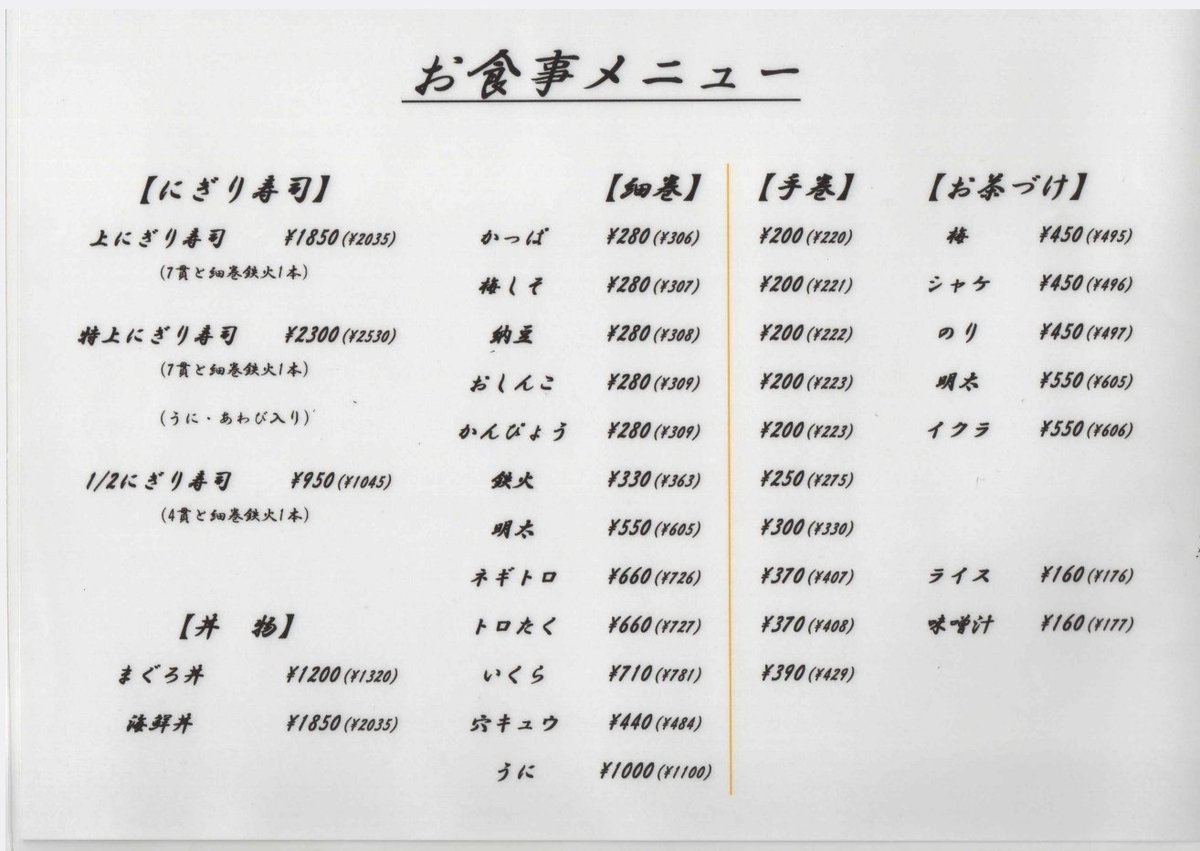 お食事メニュー
【にぎり寿司】
上にぎり寿司 ¥1850(¥2035)
(7貫と細巻鉄火1本)
特上にぎり寿司 ¥2300(¥2530)
(7貫と細巻鉄火1本)
(うに・あわび入り)
1/2にぎり寿司 ¥950(¥1045)
(4貫と細巻鉄火1本)
【丼 物】
まぐろ丼 ¥1200(¥1320)
海鮮丼 ¥1850(¥2035)
【細巻】 【手巻】
かっぱ ¥280(¥306) ¥200(¥220)
梅しそ ¥280(¥307) ¥200(¥221)
納豆 ¥280(¥308) ¥200(¥222)
おしんこ ¥280(¥309) ¥200(¥223)
かんぴょう ¥280(¥309) ¥200(¥223)
鉄火 ¥330(¥363) ¥250(¥275)
明太 ¥550(¥605) ¥300(¥330)
ネギトロ ¥660(¥726) ¥370(¥407)
トロたく ¥660(¥727) ¥370(¥408)
いくら ¥710(¥781) ¥390(¥429)
穴キュウ ¥440(¥484)
うに ¥1000(¥1100)
【お茶づけ】
梅 ¥450(¥495)
シャケ ¥450(¥496)
のり ¥450(¥497)
明太 ¥550(¥605)
イクラ ¥550(¥606)
ライス ¥160(¥176)
味噌汁 ¥160(¥177)